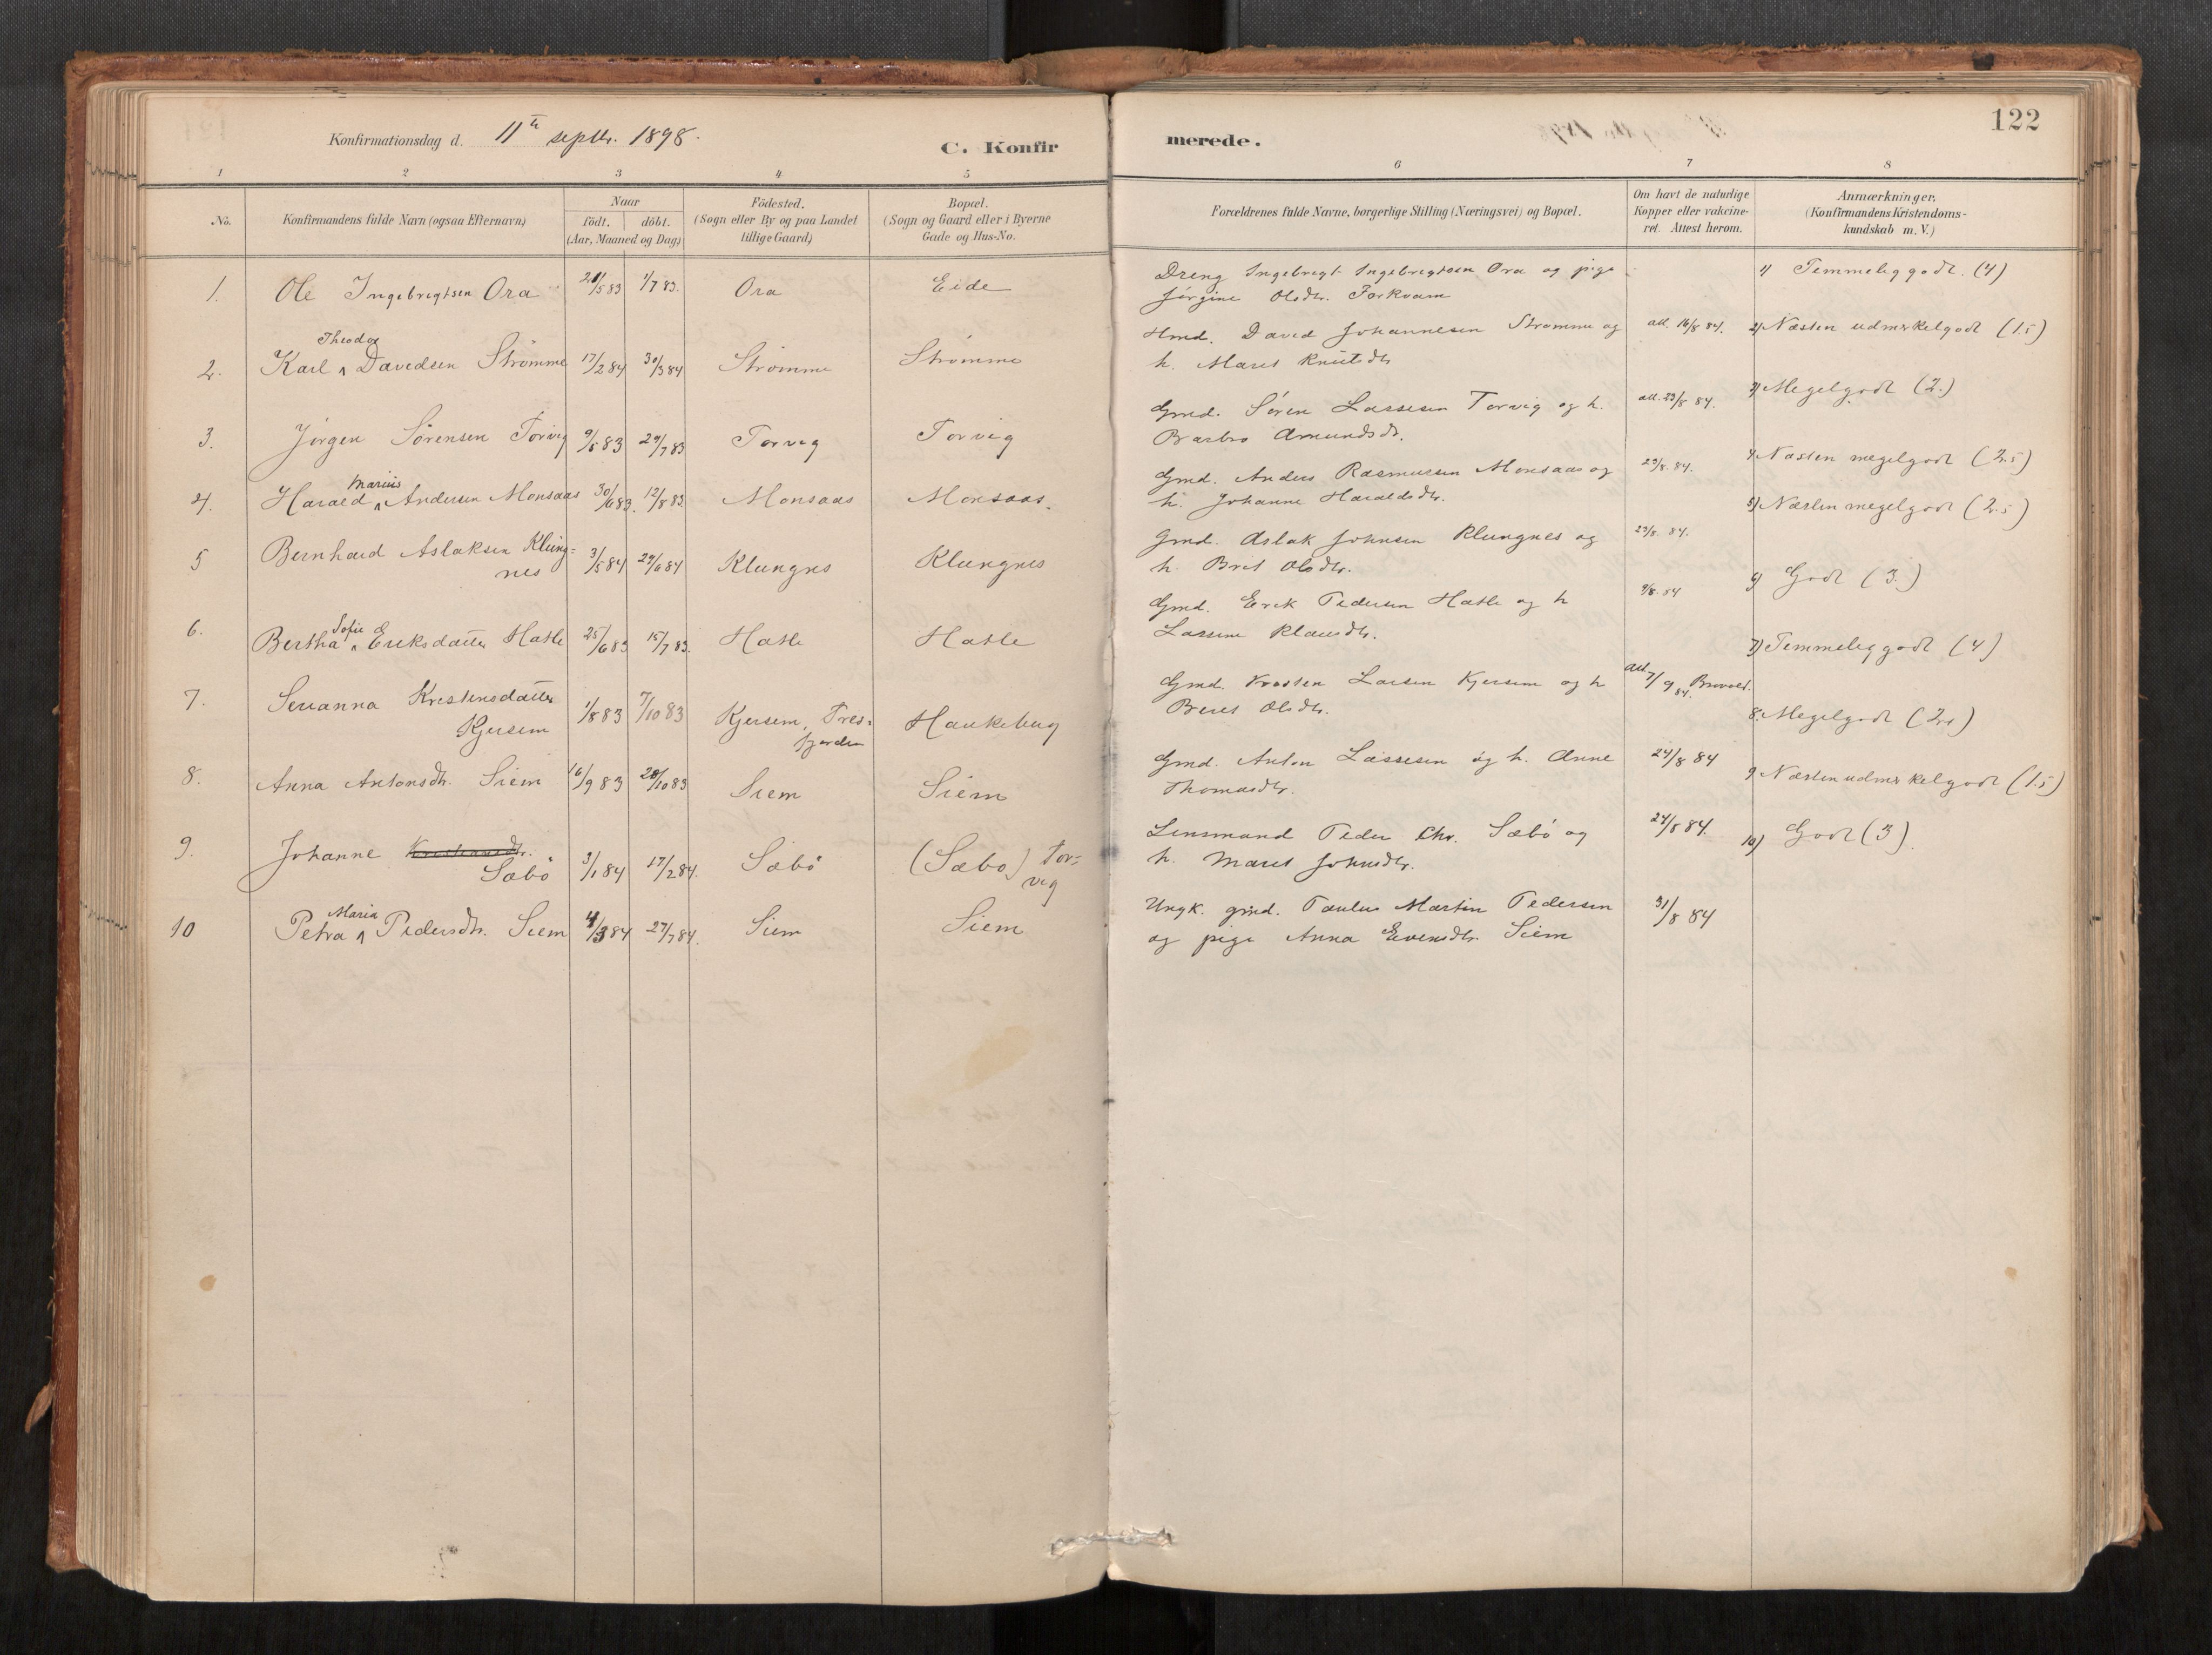 122
Konfirmationsdag d. 11te septbr. 1898.
C. Konfirmerede.
1 2 3 4 5 6 7 8
No.
Konfirmandens fulde Navn (ogsaa Efternavn)
Naar
födt. döbt.
(Aar, Maaned og Dag)
Födested.
(Sogn eller By og paa Landet
tillige Gaard)
Bopæl.
(Sogn og Gaard eller i Byerne
Gade og Hus-No.
Forældrenes fulde Navne, borgerlige Stilling (Næringsvei) og Bopæl.
Om havt de naturlige
Kopper eller vakcine-
ret. Attest herom.
Anmærkninger.
(Konfirmandens Kristendoms-
kundskab m. V.)
1. Ole Ingebrigtsen Ora 21/5 83 1/7 83. Ora Eide
Dreng Ingebrigt Ingebrigtsen Ora og pige
Jørgine Olsdtr. Torkvam
1) Temmelig godt. (4)
Theodor
2. Karl ^ Davidsen Strømme 17/2 84 30/3 84 Strømme Strømme
Hmd. David Johannesen Strømme og
h. Maret Knutsdtr
att. 16/8 84.
2) Næsten udmerketgodt (1.5)
3. Jørgen Sörensen Torvig 9/5 83 29/7 83 Torvig Torvig
Gmd. Sören Lassesen Torvig og h.
Barbro Amundsdtr.
att. 23/8 84.
3) Megetgodt (2.)
Marius
4. Harald ^ Andersen Monsaas 30/6 83. 12/8 83. Monsaas Monsaas.
Gmd. Anders Rasmussen Monsaas og
h. Johanne Haraldsdtr.
23/8. 84.
4) Næsten megetgodt (2.5)
5 Bernhard Aslaksen Klung-
nes 3/5 84 29/6 84 Klungnes Klungnes
Gmd. Aslak Johnsen Klungnes og
h. Brit Olsdtr.
23/8. 84.
5) Næsten megetgodt (2.5)
Sofie
6. Bertha ^ Eriksdatter Hatle 25/6 83 15/7 83. Hatle Hatle
Gmd. Erik Pedersen Hatle og h
Lassine Klausdtr.
9/8. 84
6) Godt (3.)
7. Servanna Kristensdatter
Kjersem 1/8 83 7/10 83 Kjersem, Tres-
fjorden Haukebug
Gmd. Kristen Larsen Kjersem og h
Beret Olsdtr.
att 7/9 84.
7) Temmelig godt (4)
8. Anna Antonsdtr. Siem 16/9 83 28/10 83 Siem Siem
Gmd. Anton Lassesen og h. Anne
Thomasdtr.
24/8 84
8. Megetgodt
9. Johanne Kristiansdtr.
Sæbö 3/1 84 17/2 84. Sæbö (Sæbo) Tor-
vig
Lensmand Peder Chr. Sæbö og
h. Maret Johnsdtr.
24/8 84.
9 Næsten udmerketgodt (1.5)
Maria
10 Petra ^ Pedersdtr. Siem 4/3 84 27/7 84. Siem Siem
Ungk. gmd. Paulus Martin Pedersen
og pige Anna Evensdtr. Siem
31/8 84
10) Godt (3).